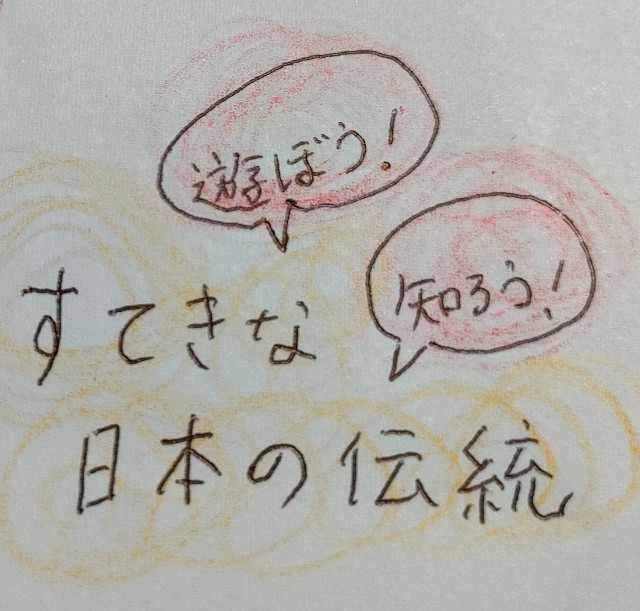 遊ぼう!
知ろう!
すてきな
日本の伝統